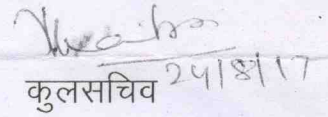 24/8/17
कुलसचिव